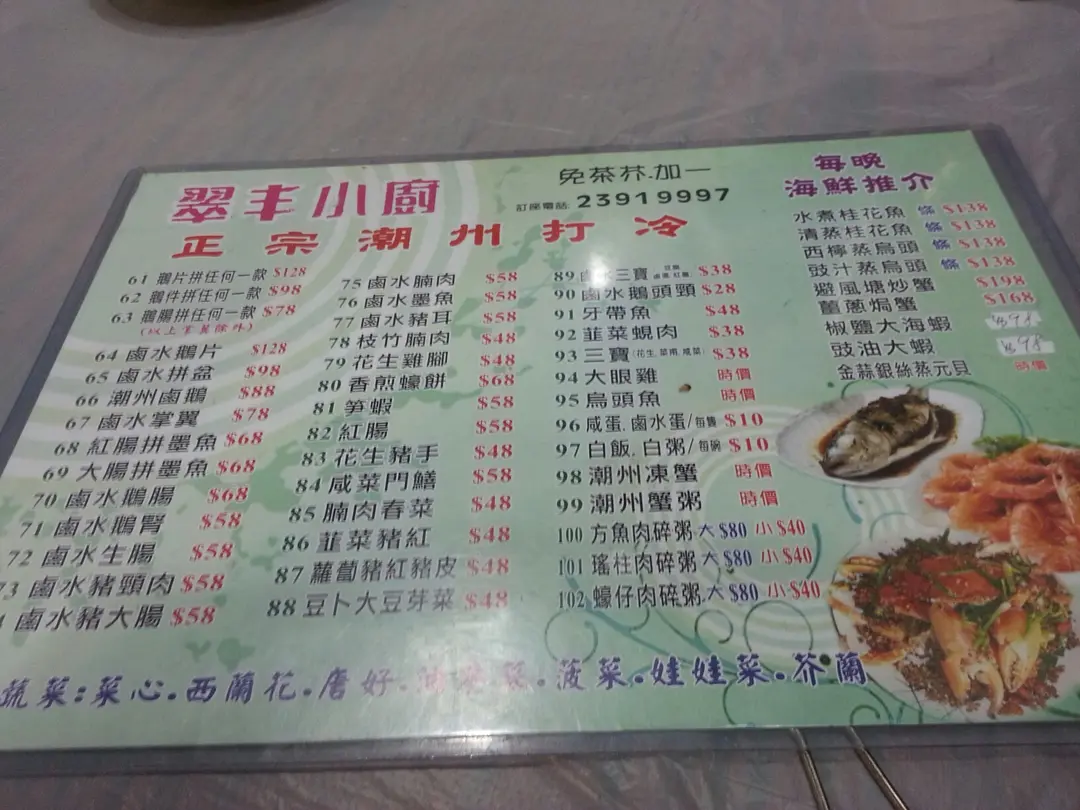 翠丰小廚
免茶芥.加一
訂座電話: 23919997
正宗潮州打冷
61 鵝片拼任何一款 $128
62 鵝件拼任何一款 $98
63 鵝腸拼任何一款 $78
(以上掌翼除外)
64 鹵水鵝片 $128
65 鹵水拼盆 $98
66 潮州鹵鵝 $88
67 鹵水掌翼 $78
68 紅腸拼墨魚 $68
69 大腸拼墨魚 $68
70 鹵水鵝腸 $68
71 鹵水鵝腎 $58
72 鹵水生腸 $58
73 鹵水豬頸肉 $58
鹵水豬大腸 $58
75 鹵水腩肉 $58
76 鹵水墨魚 $58
77 鹵水豬耳 $58
78 枝竹腩肉 $48
79 花生雞腳 $48
80 香煎蠔餅 $68
81 筍蝦 $58
82 紅腸 $58
83 花生豬手 $48
84 咸菜門鱔 $58
85 腩肉春菜 $48
86 韮菜豬紅 $48
87 蘿蔔豬紅豬皮 $48
88 豆卜大豆芽菜 $48
89 鹵水三寶 $38
90 鹵水鵝頭頸 $28
91 牙帶魚 $48
92 韮菜蜆肉 $38
93 三寶(花生, 菜甫, 咸菜) $38
94 大眼雞 時價
95 烏頭魚 時價
96 咸蛋, 鹵水蛋/每隻 $10
97 白飯, 白粥/每碗 $10
98 潮州凍蟹 時價
99 潮州蟹粥 時價
100 方魚肉碎粥,大 $80 小 $40
101 瑤柱肉碎粥,大 $80 小 $40
102 蠔仔肉碎粥,大 $80 小 $40
每晚
海鮮推介
水煮桂花魚 條 $138
清蒸桂花魚 條 $138
西檸蒸烏頭 條 $138
豉汁蒸烏頭 條 $138
避風塘炒蟹 $198
薑蔥焗蟹 $168
椒鹽大海蝦 $98
豉油大蝦 $98
金蒜銀絲蒸元貝 時價
蔬菜:菜心.西蘭花.唐好.菠菜.娃娃菜.芥蘭